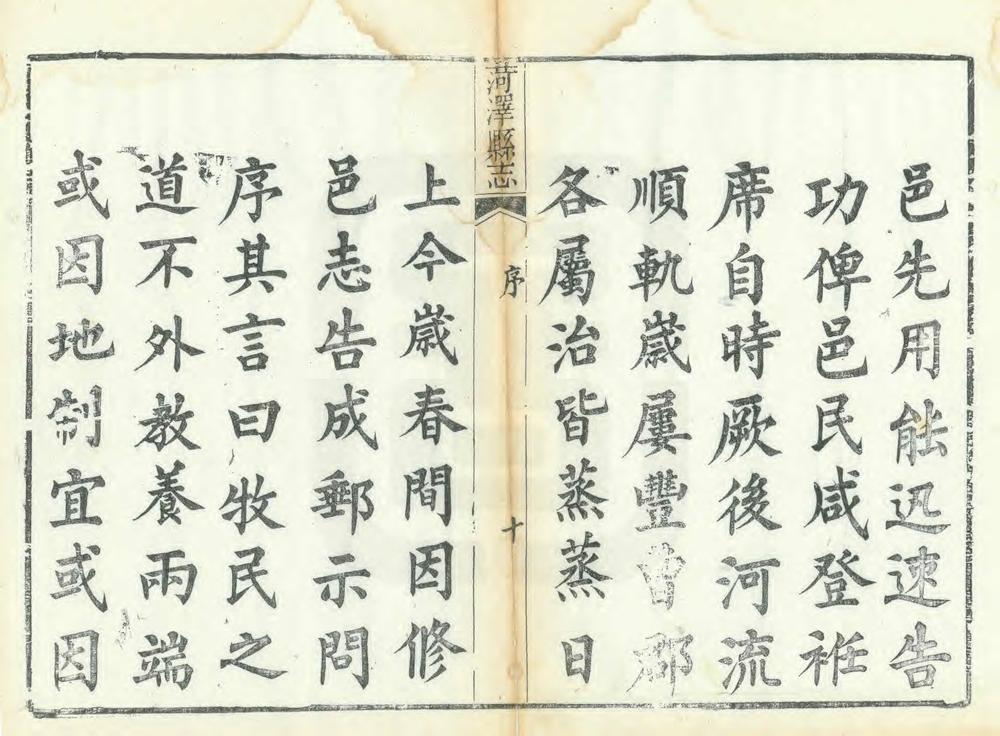 邑先用能迅速告
功俾邑民咸登袵
席自時厥後河流
順軌嵗屢豐曹郡
各屬治皆蒸蒸日
菏澤縣志
序
十
上今嵗春間因修
邑志告成郵示問
序其言曰牧民之
道不外教養兩端
或因地制宜或因